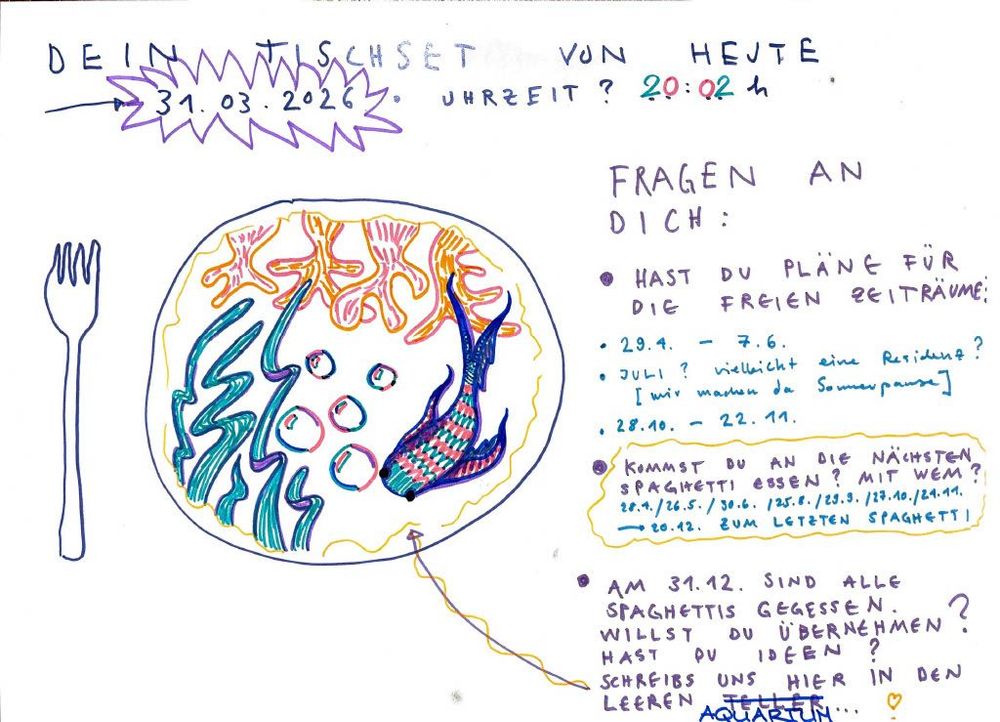 DEIN TISCHSET VON HEUTE
31.03.2026. UHRZEIT? 20:02 h
FRAGEN AN
DICH:
• HAST DU PLÄNE FÜR
DIE FREIEN ZEITRÄUME:
• 29.4. – 7.6.
• JULI? vielleicht eine Residenz?
[wir machen da Sommerpause]
• 28.10. – 22.11.
• KOMMST DU AN DIE NÄCHSTEN
SPAGHETTI ESSEN? MIT WEM?
28.4./26.5./30.6./25.8./29.9./27.10./24.11.
→ 20.12. ZUM LETZTEN SPAGHETTI
• AM 31.12. SIND ALLE
SPAGHETTIS GEGESSEN.
WILLST DU ÜBERNEHMEN?
HAST DU IDEEN?
SCHREIBS UNS HIER IN DEN
LEEREN TELLER... ♡
AQUARIUM